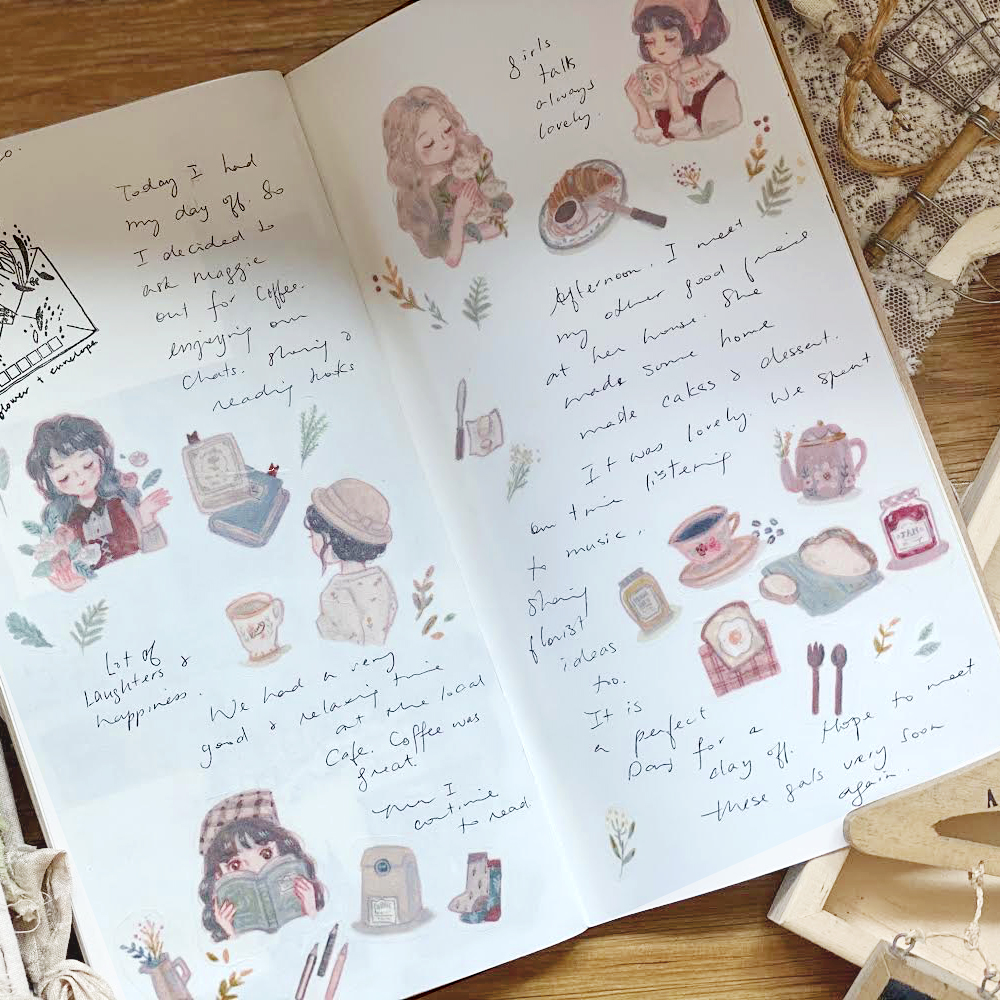 Today I had
my day off. So
I decided to
ask maggie
out for Coffee.
enjoying our
chats. sharing &
reading books
flower + envelope
Lot of
Laughters &
happiness.
We had a very
good & relaxing time
at the local
Cafe. Coffee was
great!
I
continue
to read.
girls
talk
always
lovely.
Afternoon. I meet
my other good friend
at her house. She
made some home
made cakes & dessert.
It was lovely. We spent
our time listening
to music,
sharing
florist
ideas
too.
It is
a perfect
Day for a
day off. Hope to meet
these gals very soon
again.
JAM